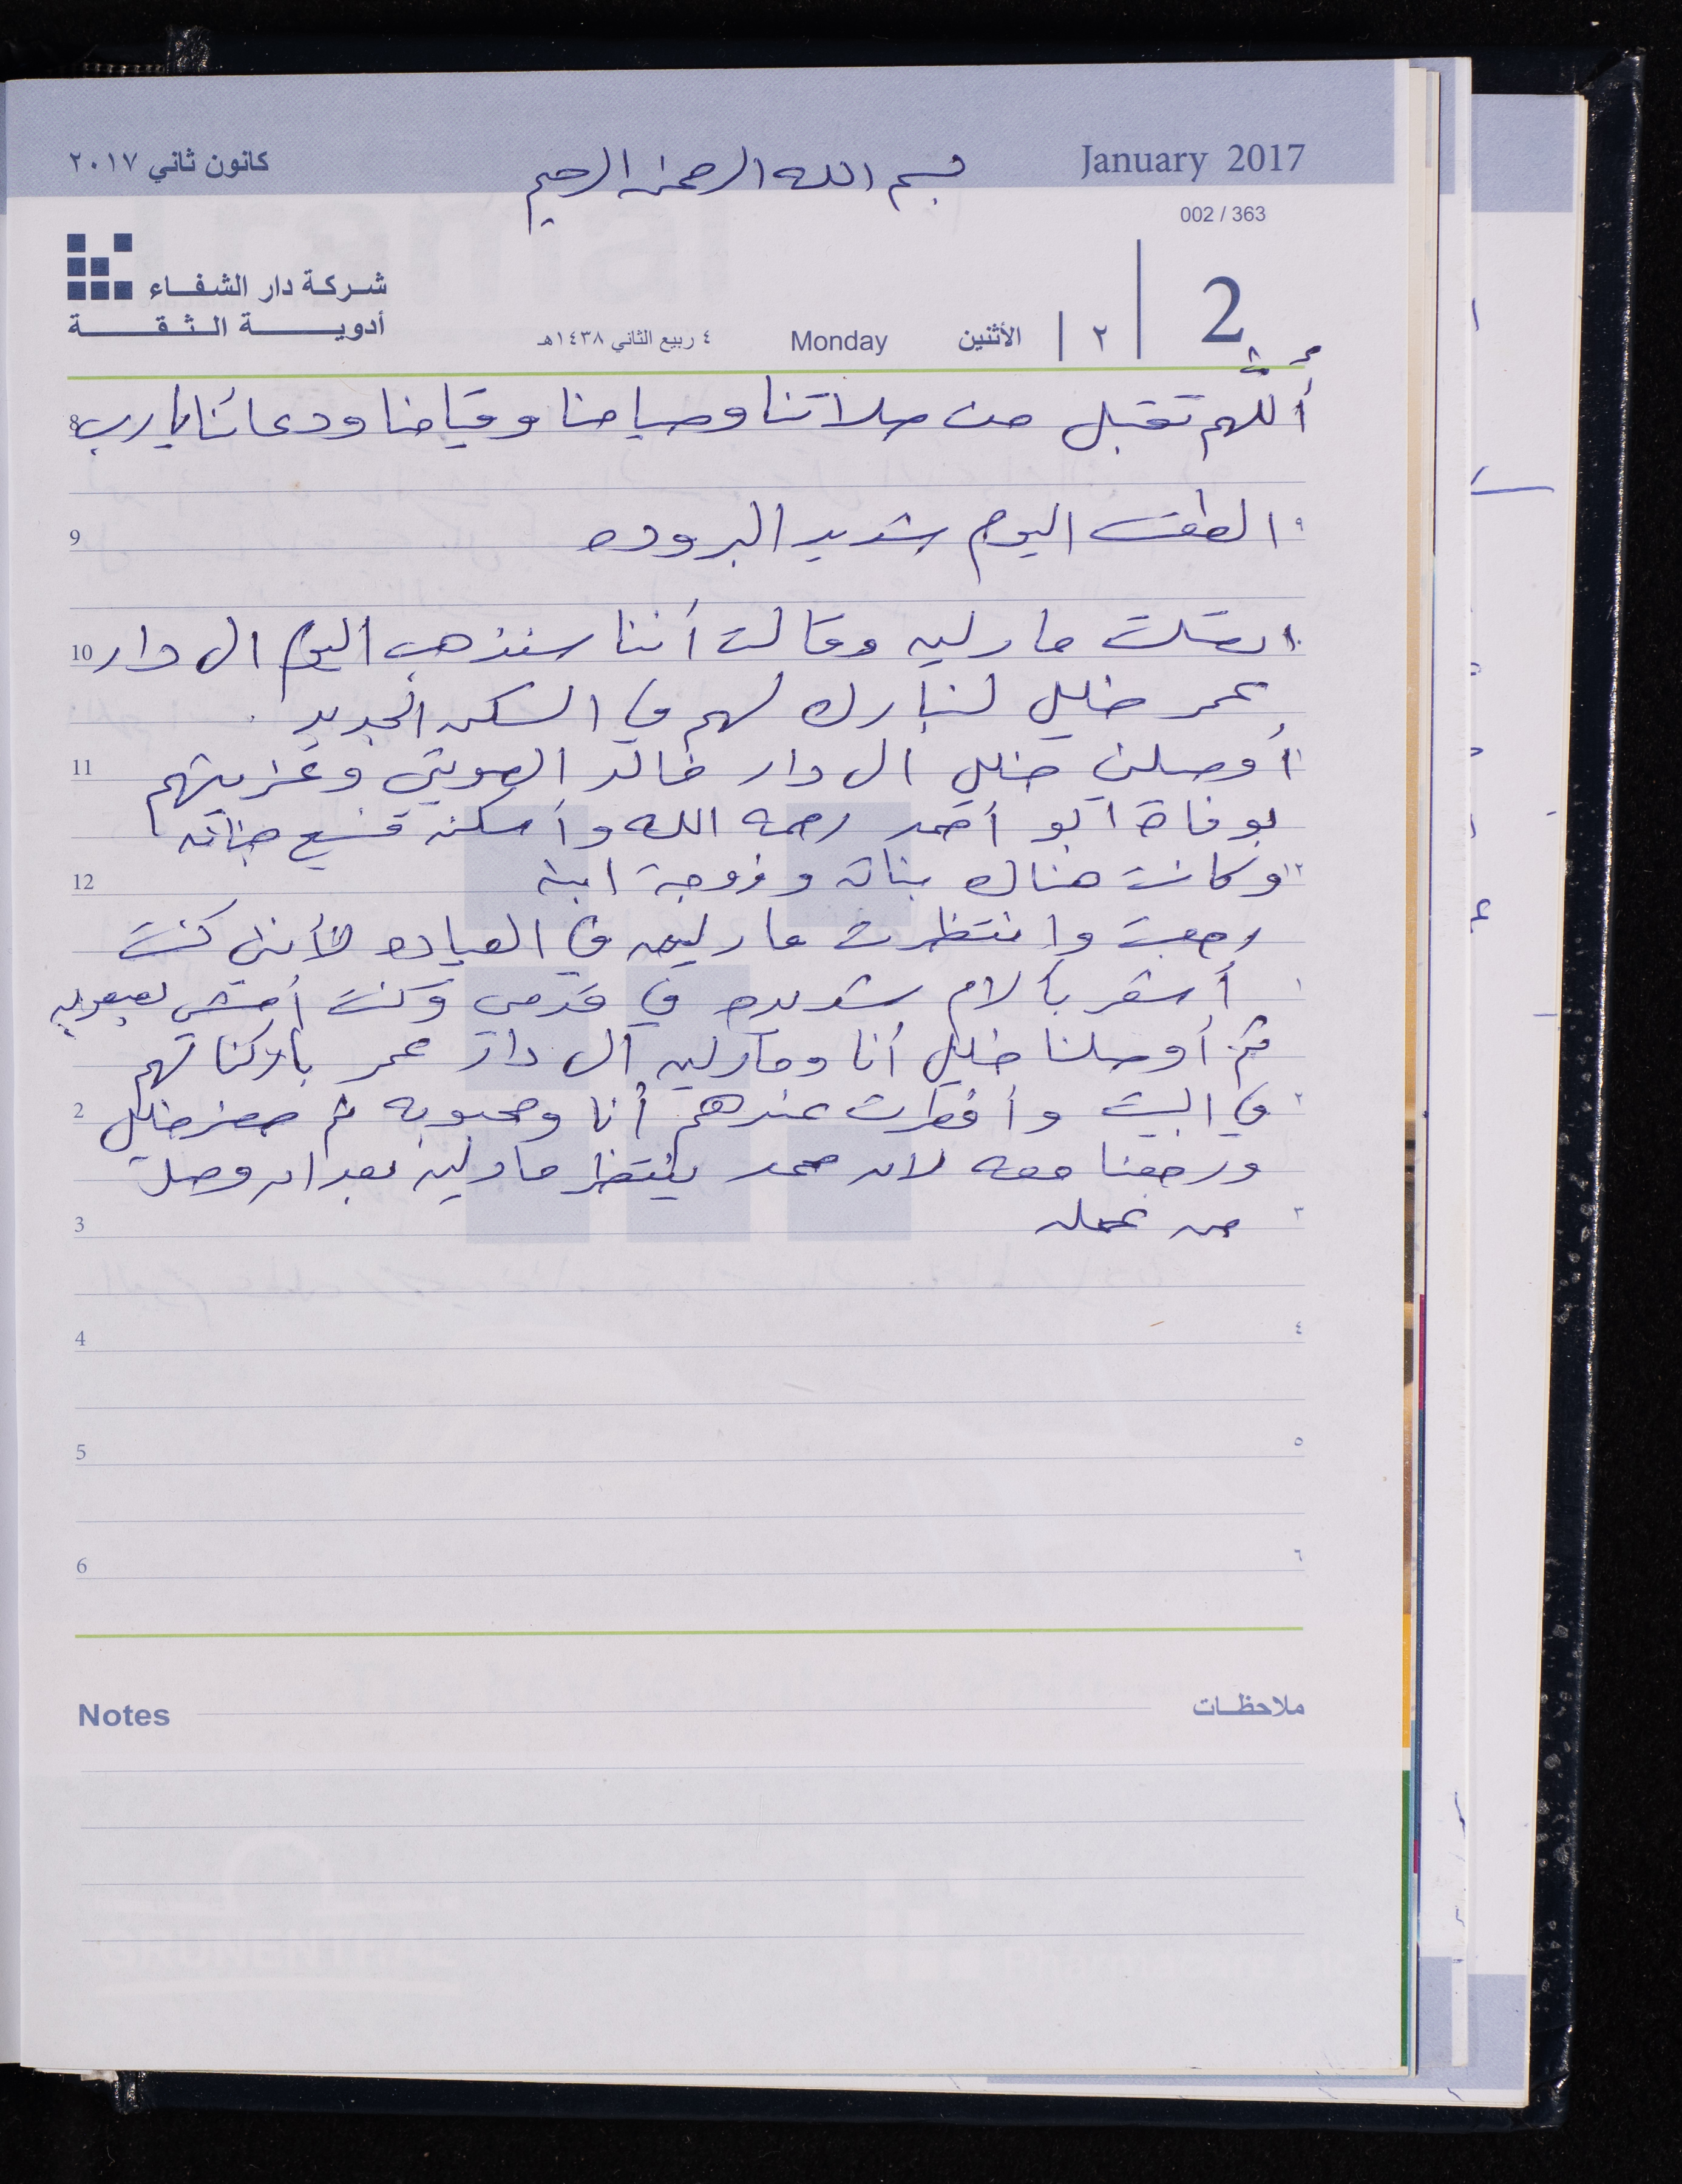 كانون ثاني ٢٠١٧ بسم الله الرحمن الرحيم January 2017
002 / 363
شركة دار الشفاء
أدوية الثقة
٤ ربيع الثاني ١٤٣٨هـ Monday الأثنين ٢ 2
أللهم تقبل من صلاتنا وصيامنا وقيامنا ودعائنا يا رب 8
٩ الطقس اليوم شديد البروده 9
اتصلت مارلين وقالت أننا سنذهب اليوم الى دار 10
عمر خليل لنبارك لهم في السكن الجديد
أوصلني خليل الى دار خالد الصويتي وعزيتهم 11
بوفاة ابو أحمد رحمه الله وأسكنه فسيح جناته
١٢ وكانت هناك بناته وزوجة ابنه 12
رجعت وانتظرت مارلين في العياده لأنني كنت
١ أشعر بآلام شديده في قدمي وكنت أمشي بصعوبه
ثم أوصلنا خليل أنا ومارلين الى دار عمر باركنا لهم
٢ في البيت وأفطرت عندهم أنا ومحبوبه ثم حضر خليل 2
ورجعنا معه لان محمد ينتظر مارلين بعد ان وصل
٣ من عمله 3
٤ 4
٥ 5
٦ 6
Notes ملاحظات